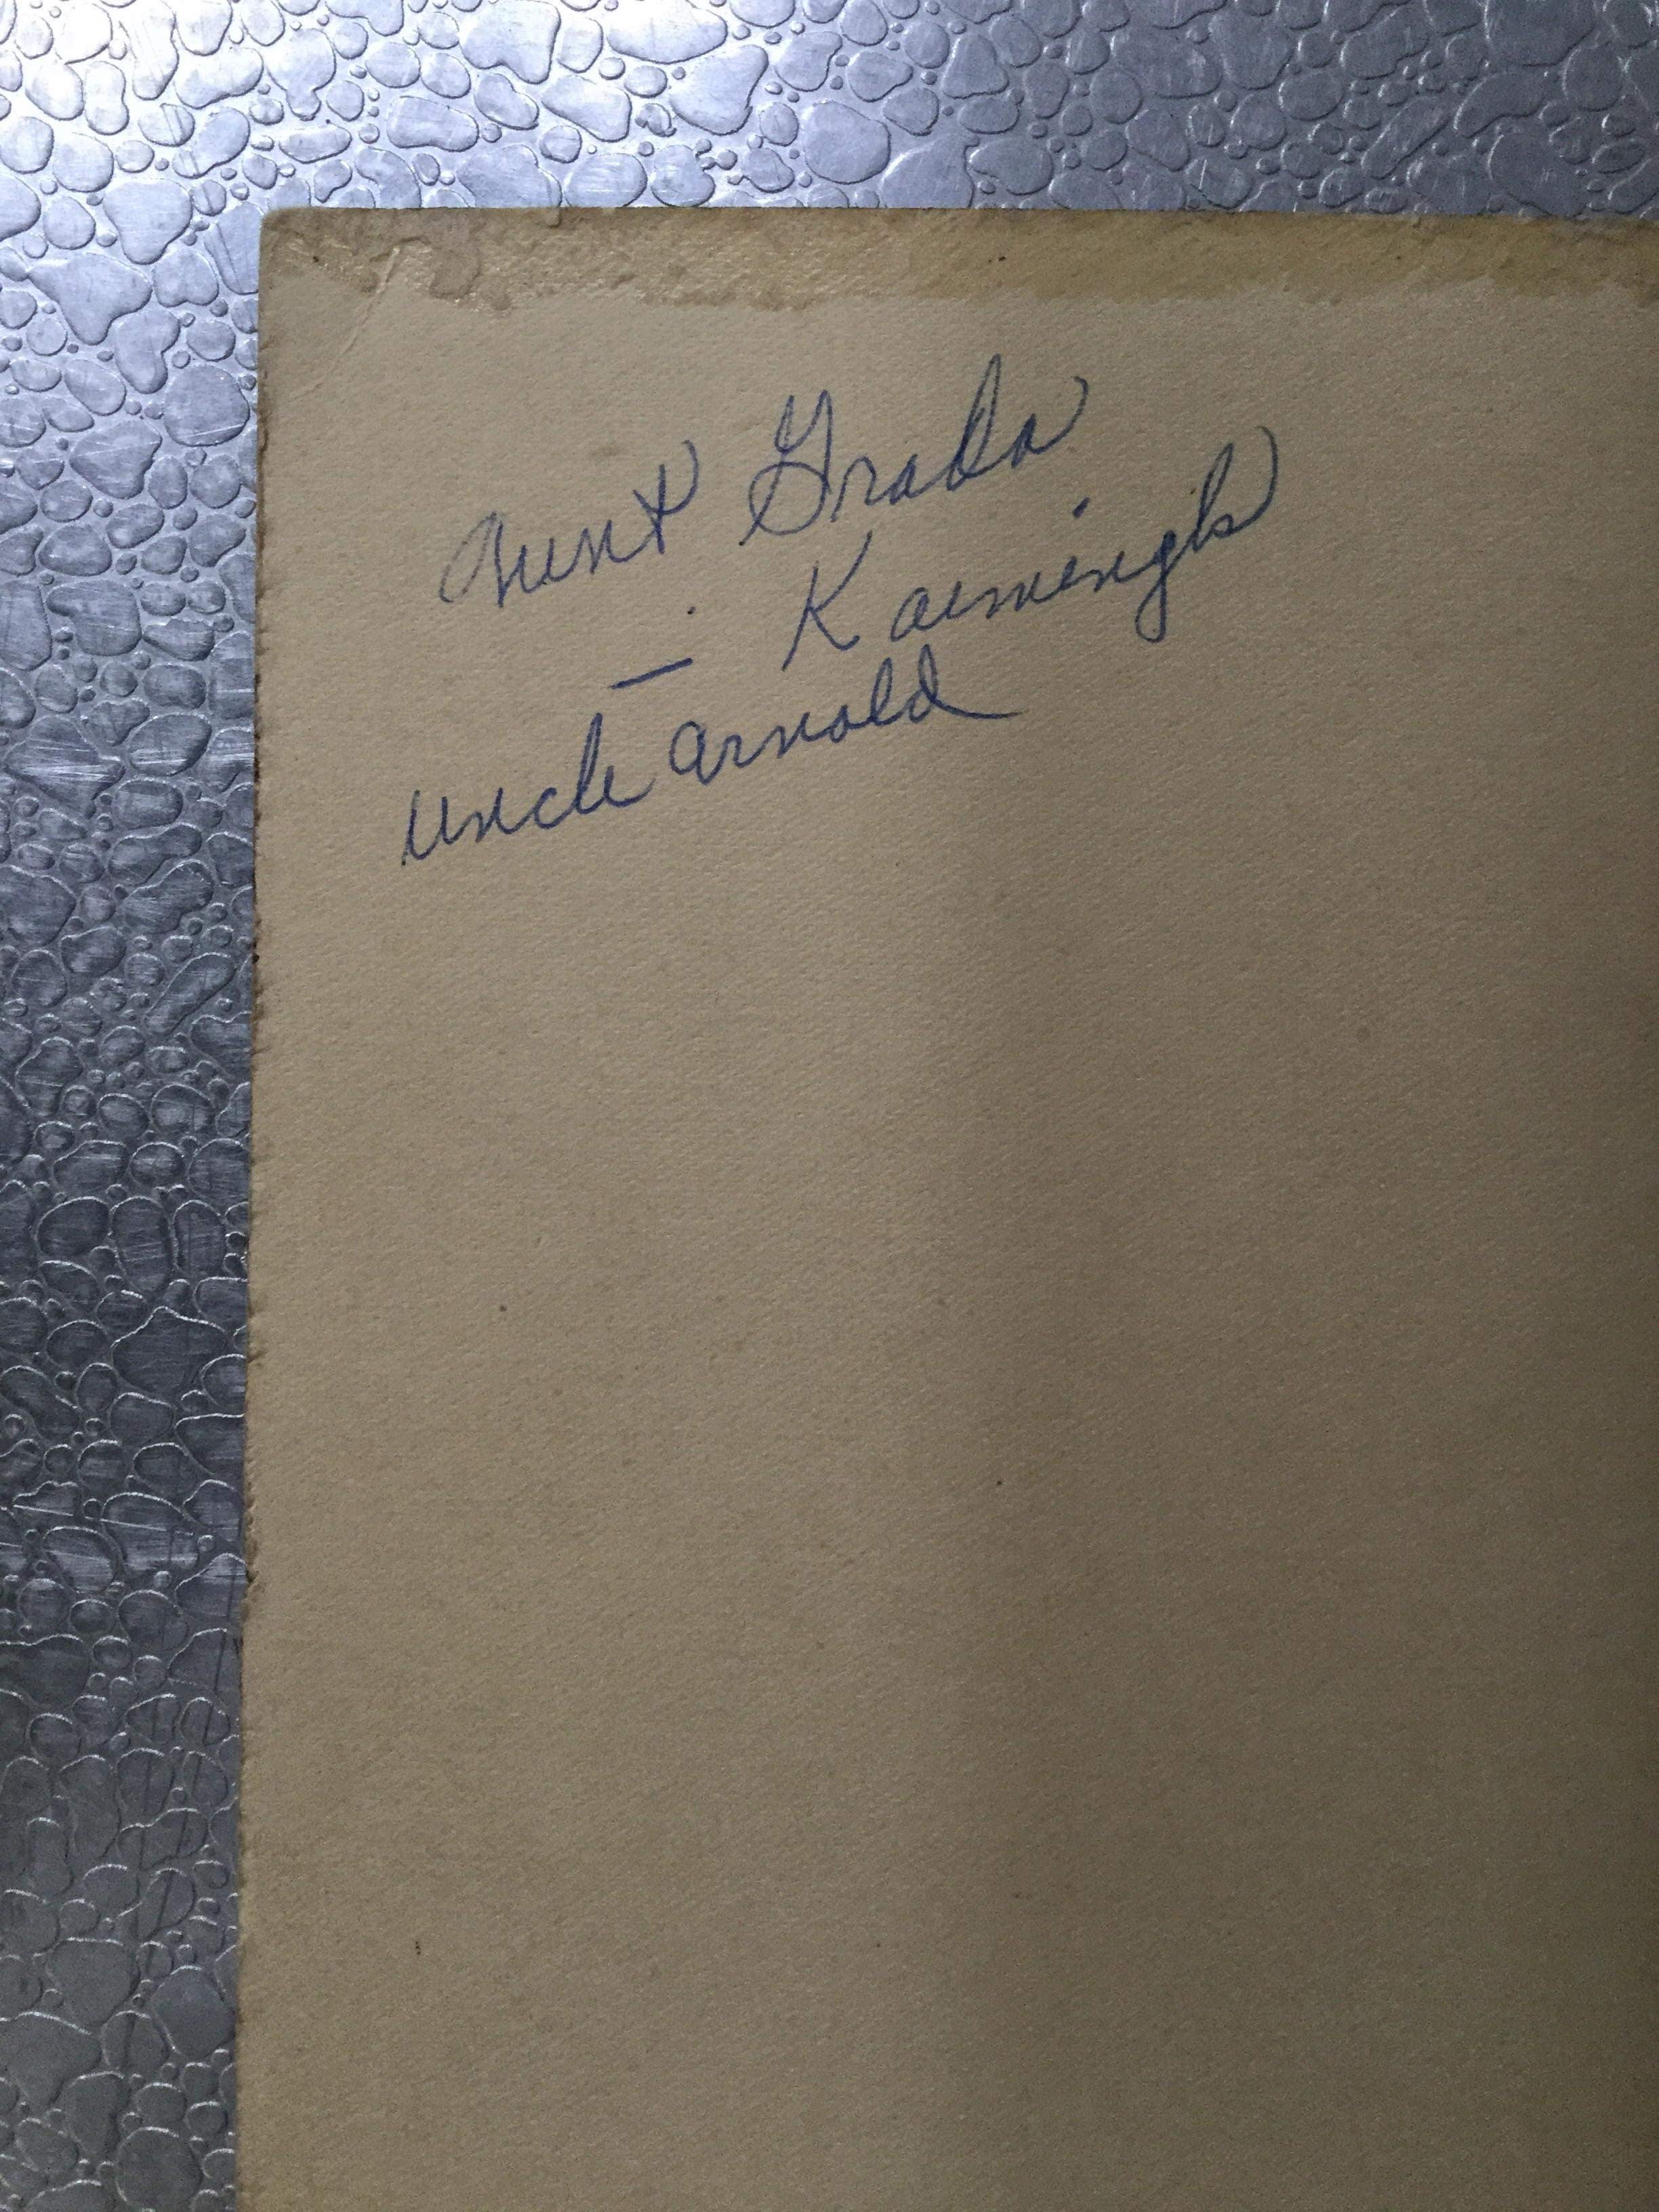 Aunt Grada
— Kaemingk
Uncle Arnold